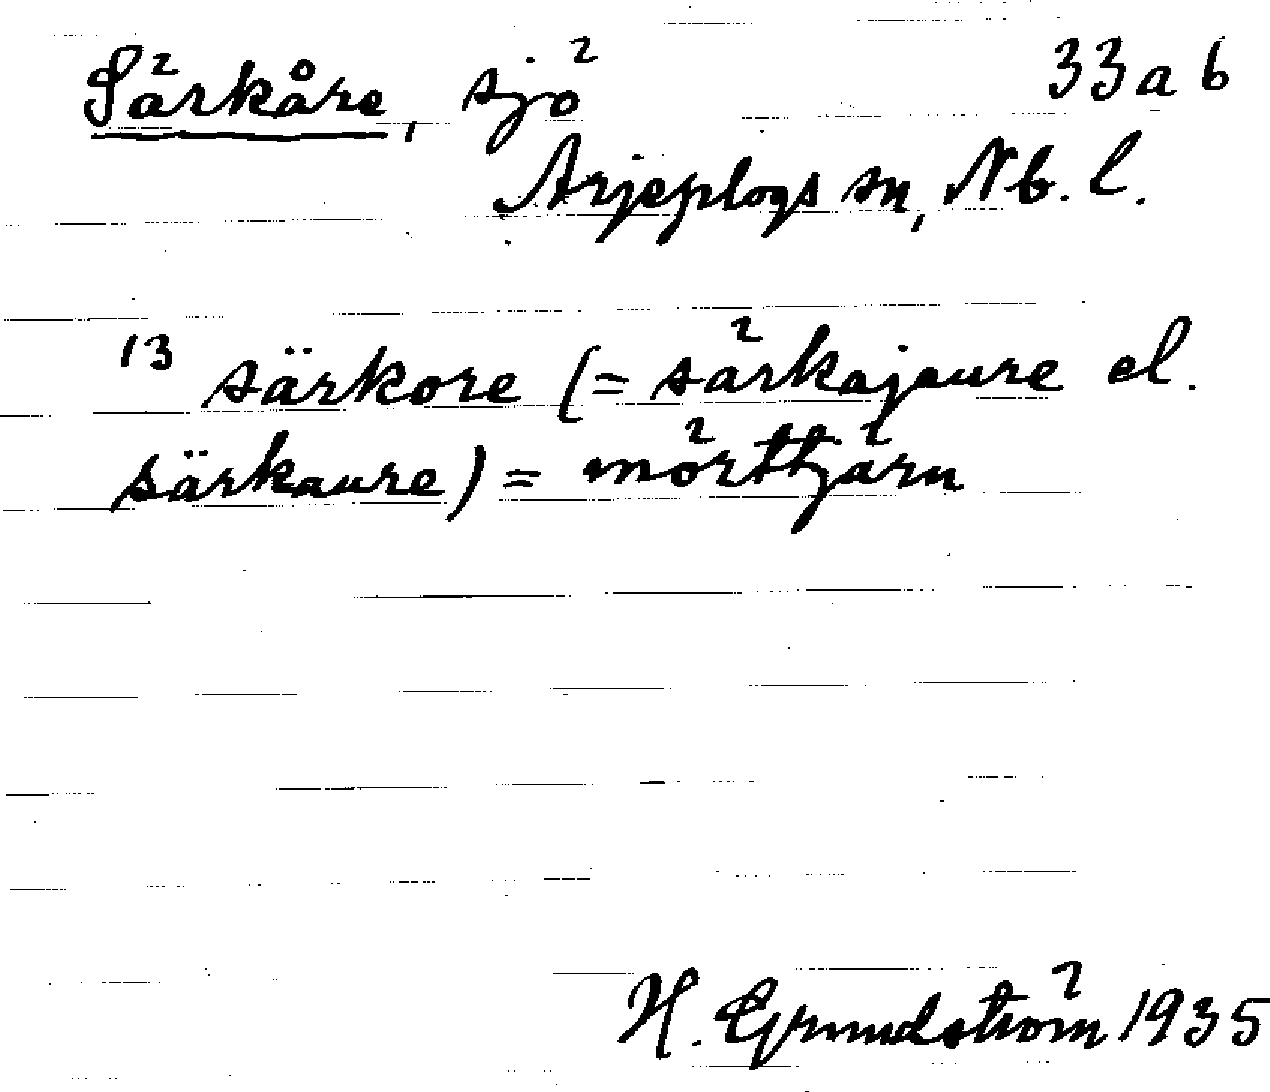 Särkåre, sjö 33 a b
Arjeplogs sn, Nb. l.
13 särkore (= särkajaure el.
särkaure) = mörttjärn
H. Grundström 1935